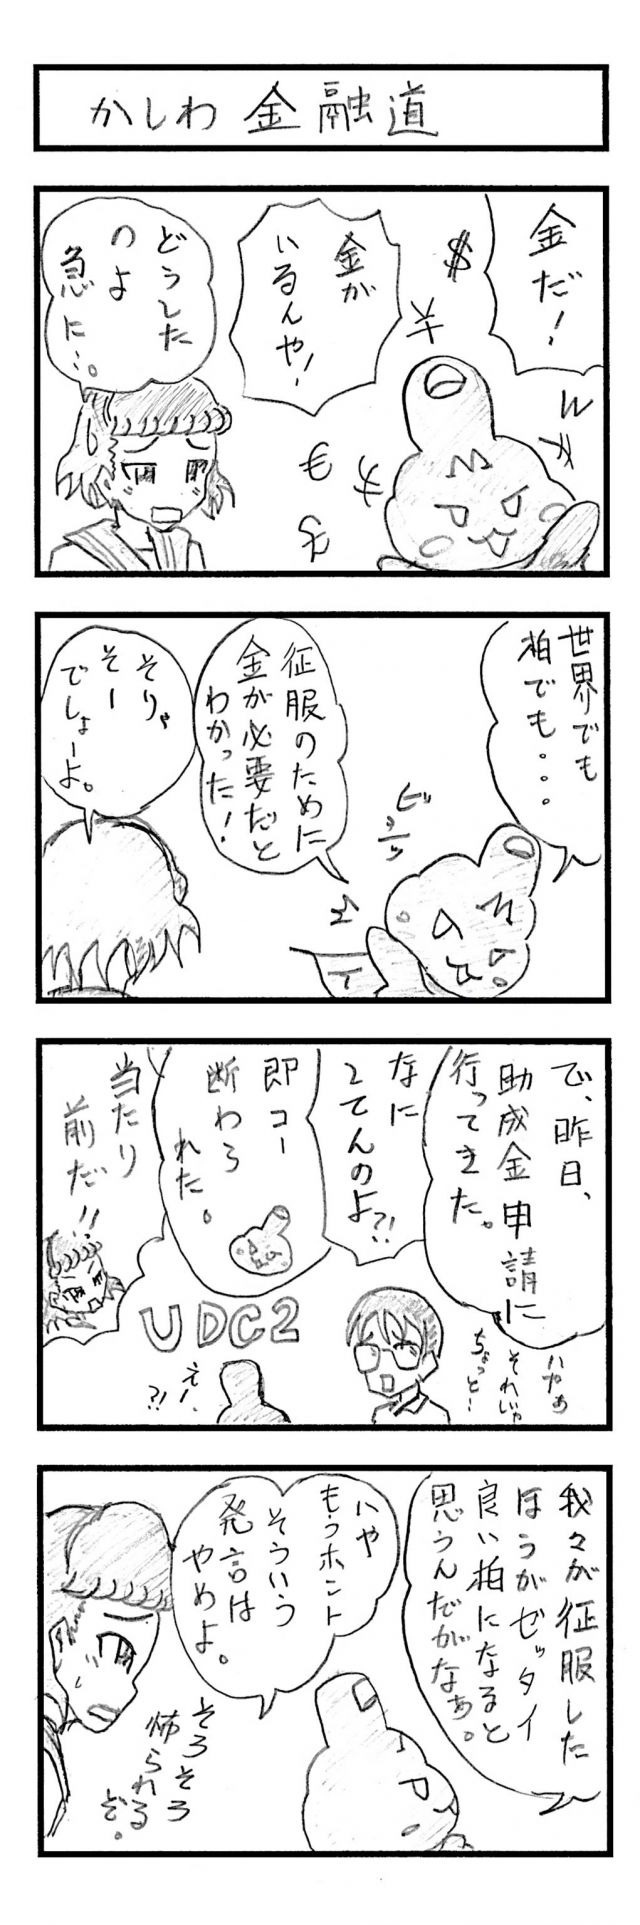 かしわ金融道
金だ!
$
¥
金が
いるんや!
どうした
のよ
急に…。
世界でも
柏でも・・・
征服のために
金が必要だと
わかった!
そりゃ
そー
でしょーよ。
で、昨日、
助成金申請に
行ってきた。
なに
してんのよ?!
即コー
断わら
れた。
当たり
前だ!!
UDC2
それじゃ
ちょっと!
えー、
?!
我々が征服した
ほうがゼッタイ
良い柏になると
思うんだがなぁ。
いや
もうホント
そういう
発言は
やめよ。
そろそろ
怖られる
ぞ。